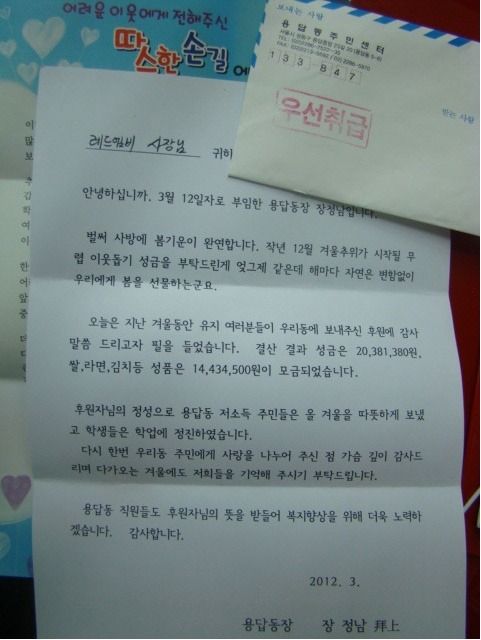 어려운 이웃에게 전해주신
따스한 손길에
보내는 사람
용답동주민센터
133-847
우선취급
받는 사람
레드캠비 사장님 귀하
안녕하십니까. 3월 12일자로 부임한 용답동장 장정남입니다.
벌써 사방에 봄기운이 완연합니다. 작년 12월 겨울추위가 시작될 무
렵 이웃돕기 성금을 부탁드린게 엊그제 같은데 해마다 자연은 변함없이
우리에게 봄을 선물하는군요.
오늘은 지난 겨울동안 유지 여러분들이 우리동에 보내주신 후원에 감사
말씀 드리고자 필을 들었습니다. 결산 결과 성금은 20,381,380원,
쌀,라면,김치등 성품은 14,434,500원이 모금되었습니다.
후원자님의 정성으로 용답동 저소득 주민들은 올 겨울을 따뜻하게 보냈
고 학생들은 학업에 정진하였습니다.
다시 한번 우리동 주민에게 사랑을 나누어 주신 점 가슴 깊이 감사드
리며 다가오는 겨울에도 저희들을 기억해 주시기 부탁드립니다.
용답동 직원들도 후원자님의 뜻을 받들어 복지향상을 위해 더욱 노력하
겠습니다. 감사합니다.
2012. 3.
용답동장 장 정남 拜上